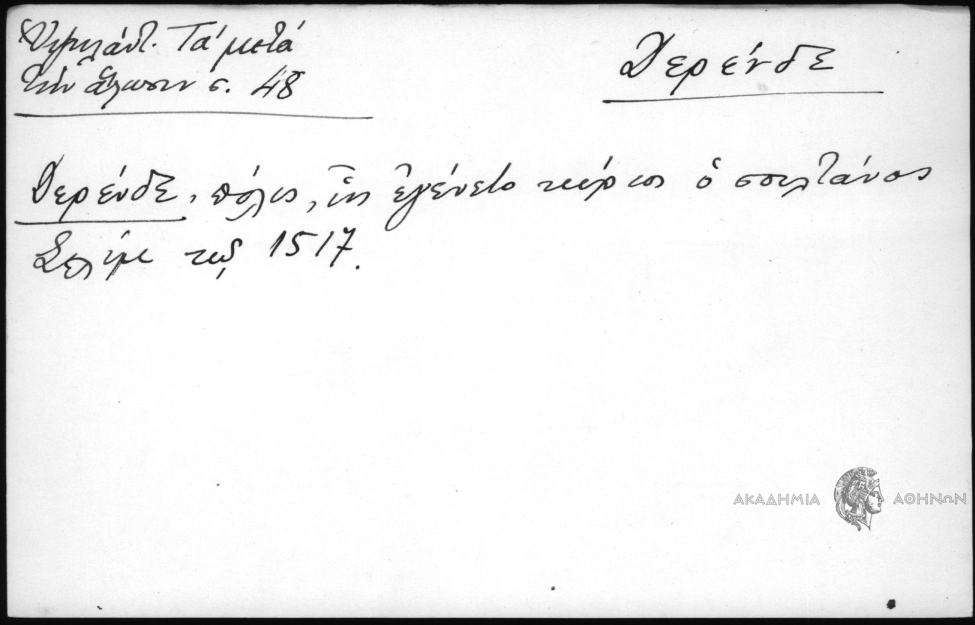 Ὑψηλάντ. Τά μετά
τήν ἅλωσιν σ. 48
Δερένδε
Δερένδε, πόλις, ἧς ἐγένετο κύριος ὁ σουλτάνος
Σελίμ τῷ 1517.
ΑΚΑΔΗΜΙΑ ΑΘΗΝΩΝ